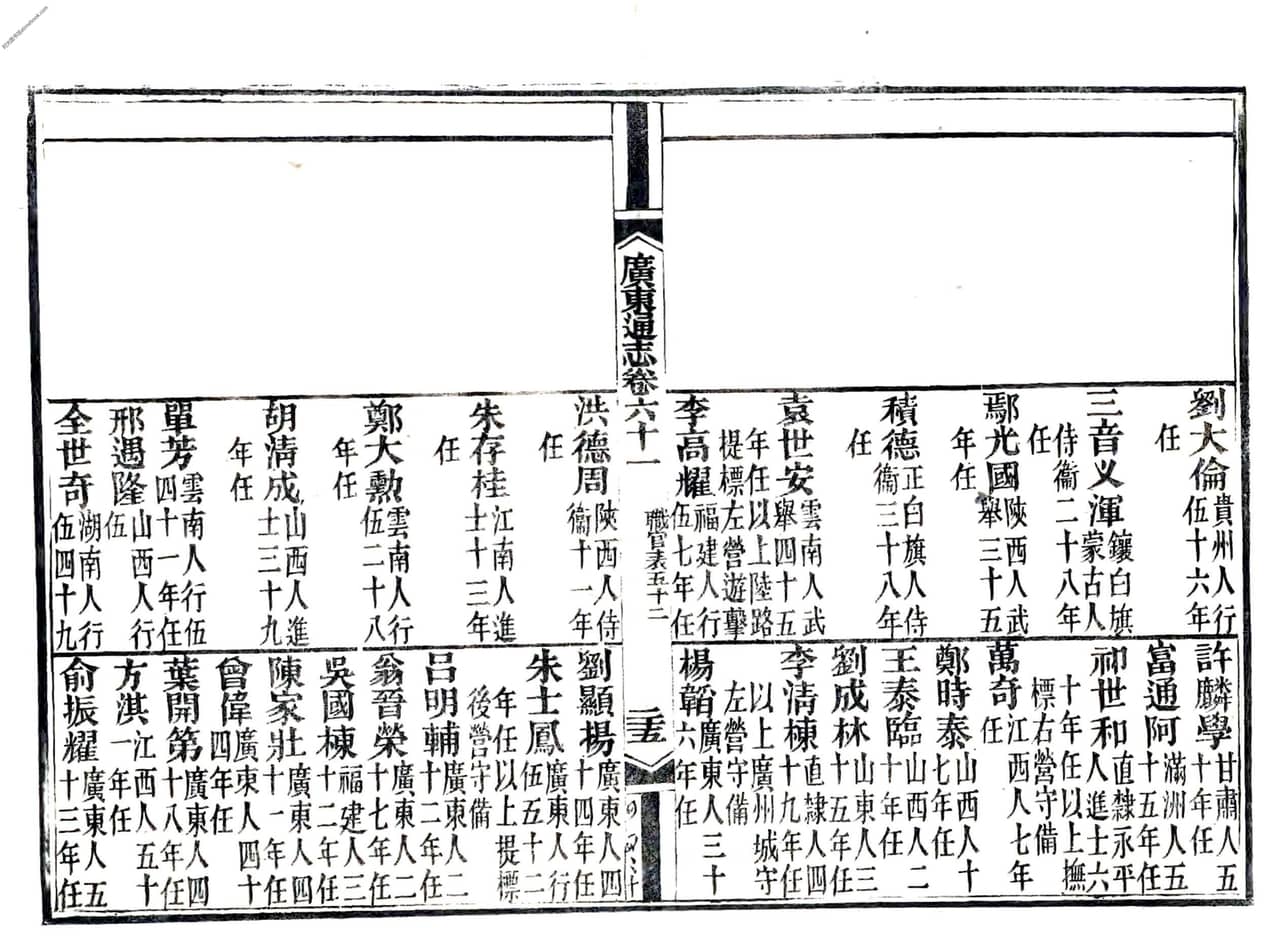 劉大倫貴州人行伍十六年任
三音义渾鑲白旗蒙古人侍衞二十八年任
鄢光國陝西人武舉三十五年任
積德正白旗人侍衞三十八年任
袁世安雲南人武舉四十五年任以上陸路提標左營遊擊
李高耀福建人行伍七年任
許麟學甘肅人五十年任
富通阿滿洲人五十五年任
祁世和直隸永平人進士六十年任以上撫標右營守備
萬奇江西人七年任
鄭時泰山西人十七年任
王泰臨山西人二十年任
劉成林山東人三十五年任
李清棟直隸人四十九年任以上廣州城守左營守備
楊韜廣東人三十六年任
廣東通志卷六十一
職官表五十二
二十五
洪德周陝西人侍衞十一年任
朱存桂江南人進士十三年任
鄭大勳雲南人行伍二十八年任
胡清成山西人進士三十九年任
單芳雲南人行伍四十一年任
邢遇隆山西人行伍
全世奇湖南人行伍四十九
劉顯揚廣東人四十四年任
朱士鳳廣東人行伍五十二年任以上提標後營守備
呂明輔廣東人二十二年任
翁晉榮廣東人二十七年任
吳國棟福建人三十二年任
陳家壯廣東人四十一年任
曾偉廣東人四十四年任
葉開第廣東人四十八年任
方淇江西人五十一年任
俞振耀廣東人五十三年任